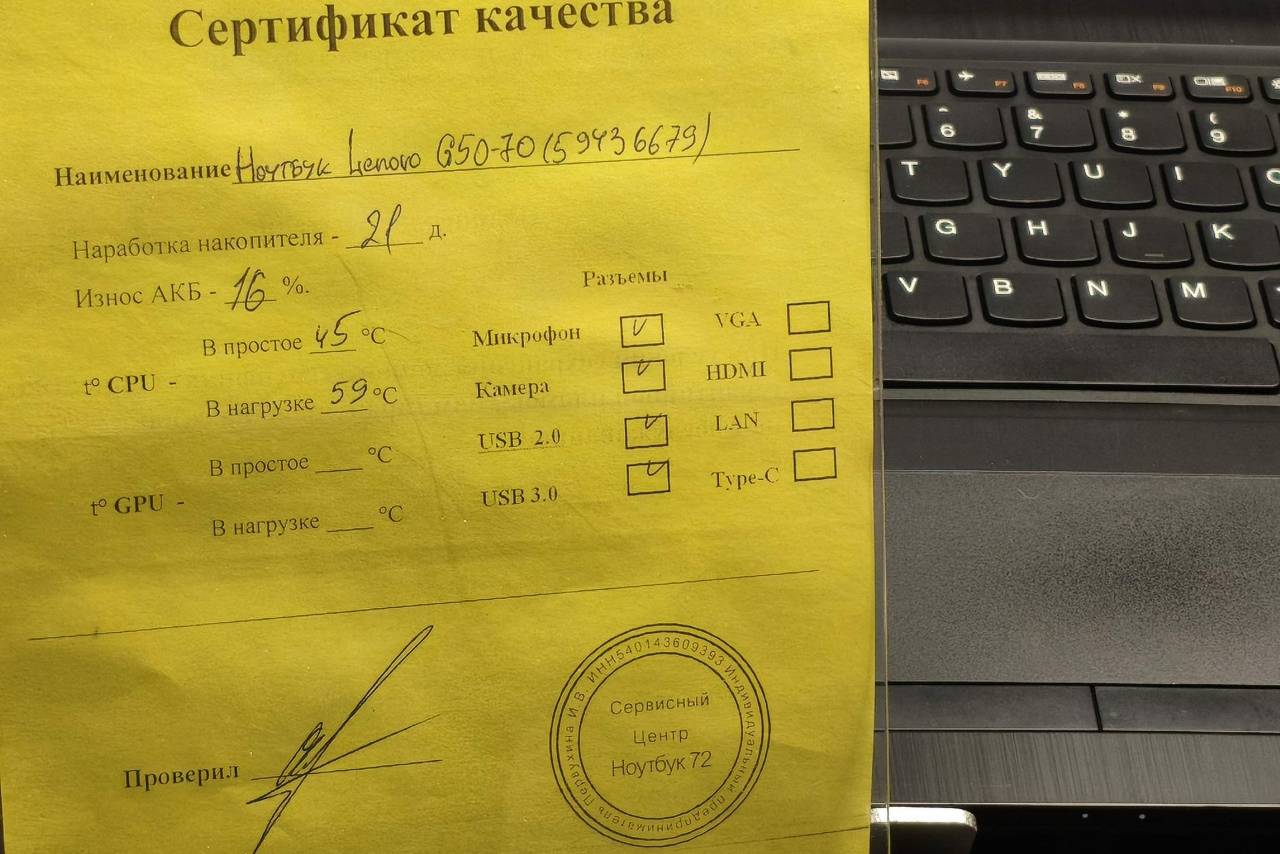 Сертификат качества
Наименование Ноутбук Lenovo G50-70 (59436679)
Наработка накопителя - 21 д.
Износ АКБ - 16 %.
t° CPU -
В простое 45 °C
В нагрузке 59 °C
t° GPU -
В простое ____ °C
В нагрузке ____ °C
Разъемы
Микрофон
Камера
USB 2.0
USB 3.0
VGA
HDMI
LAN
Type-C
Проверил
Индивидуальный предприниматель Первухина И.В. ИНН540143609393
Сервисный
Центр
Ноутбук 72
F6 F7 F8 F9 F10
^ 6 & 7 * 8 ( 9
T Y U I
G H J K
V B N M